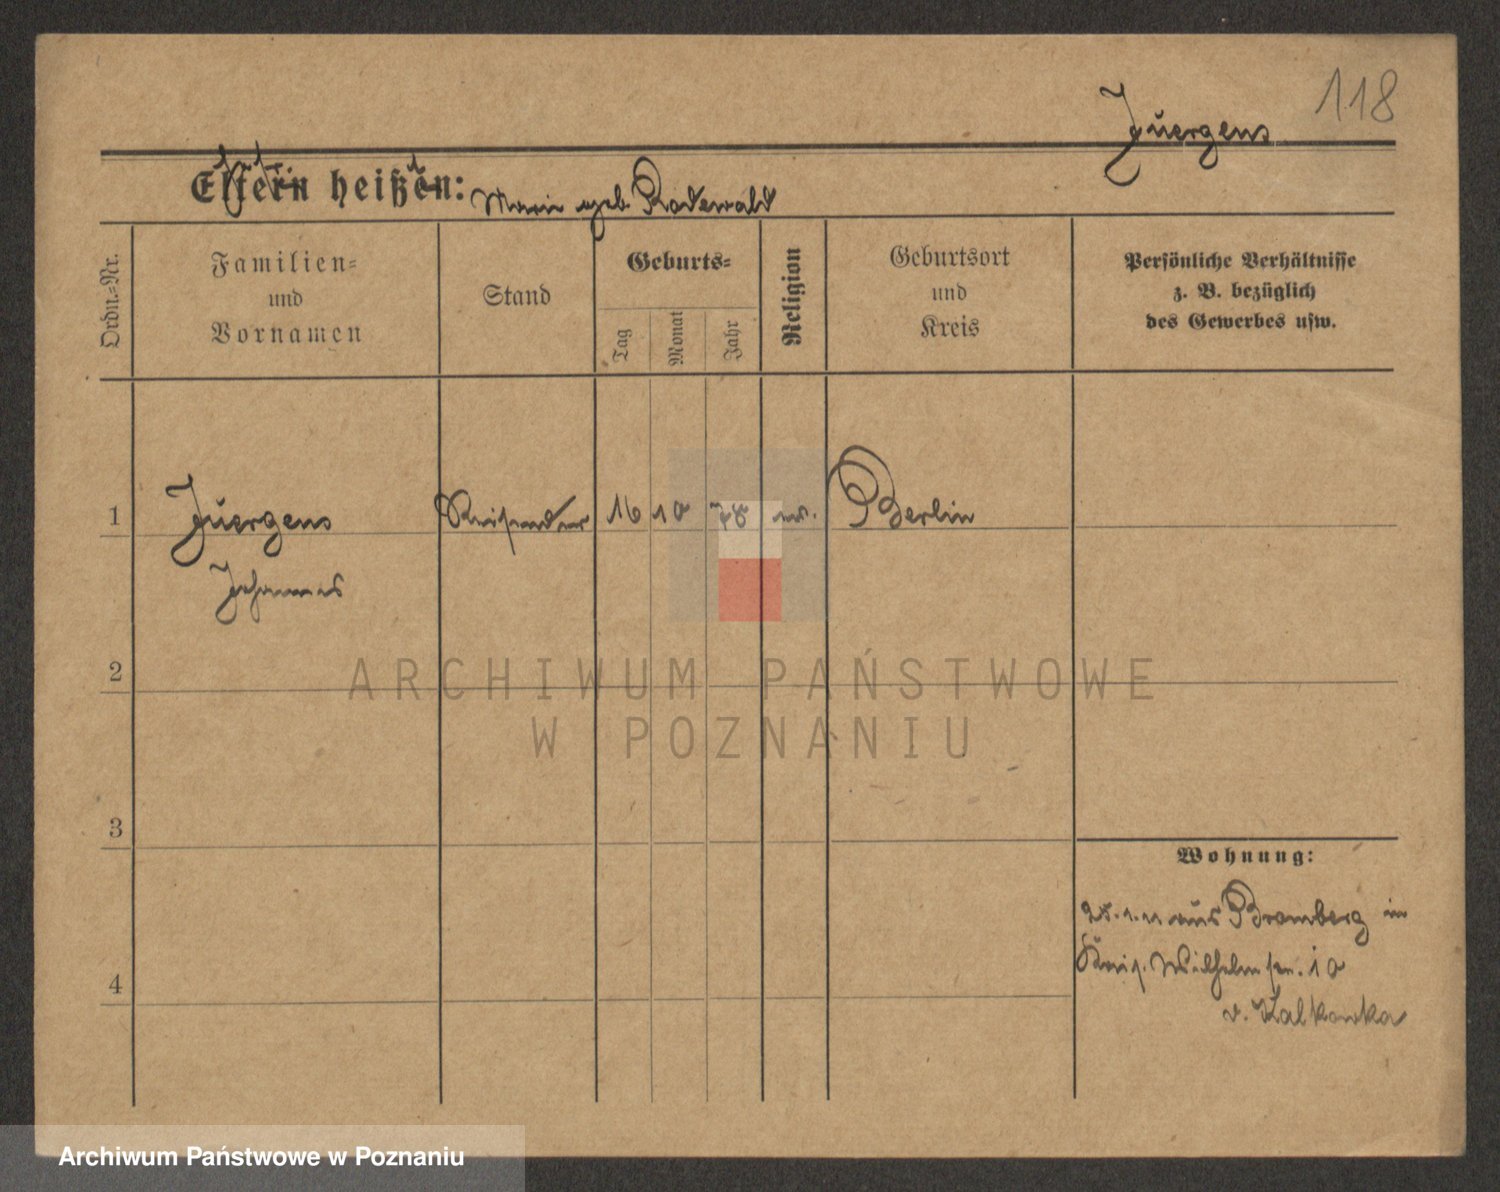 118
Juergens
Eltern heißen: Marie geb. Rodewald
Ordn.=Nr.
Familien=
und
Vornamen
Stand
Geburts=
Tag
Monat
Jahr
Religion
Geburtsort
und
Kreis
Persönliche Verhältnisse
z. B. bezüglich
des Gewerbes usw.
1
Juergens Reisender 16 10 78 ev. Berlin
Johannes
2
ARCHIWUM PAŃSTWOWE
W POZNANIU
3
Wohnung:
aus Bromberg in
Wilhelm str. 10
4
v. Kalkowska
Archiwum Państwowe w Poznaniu